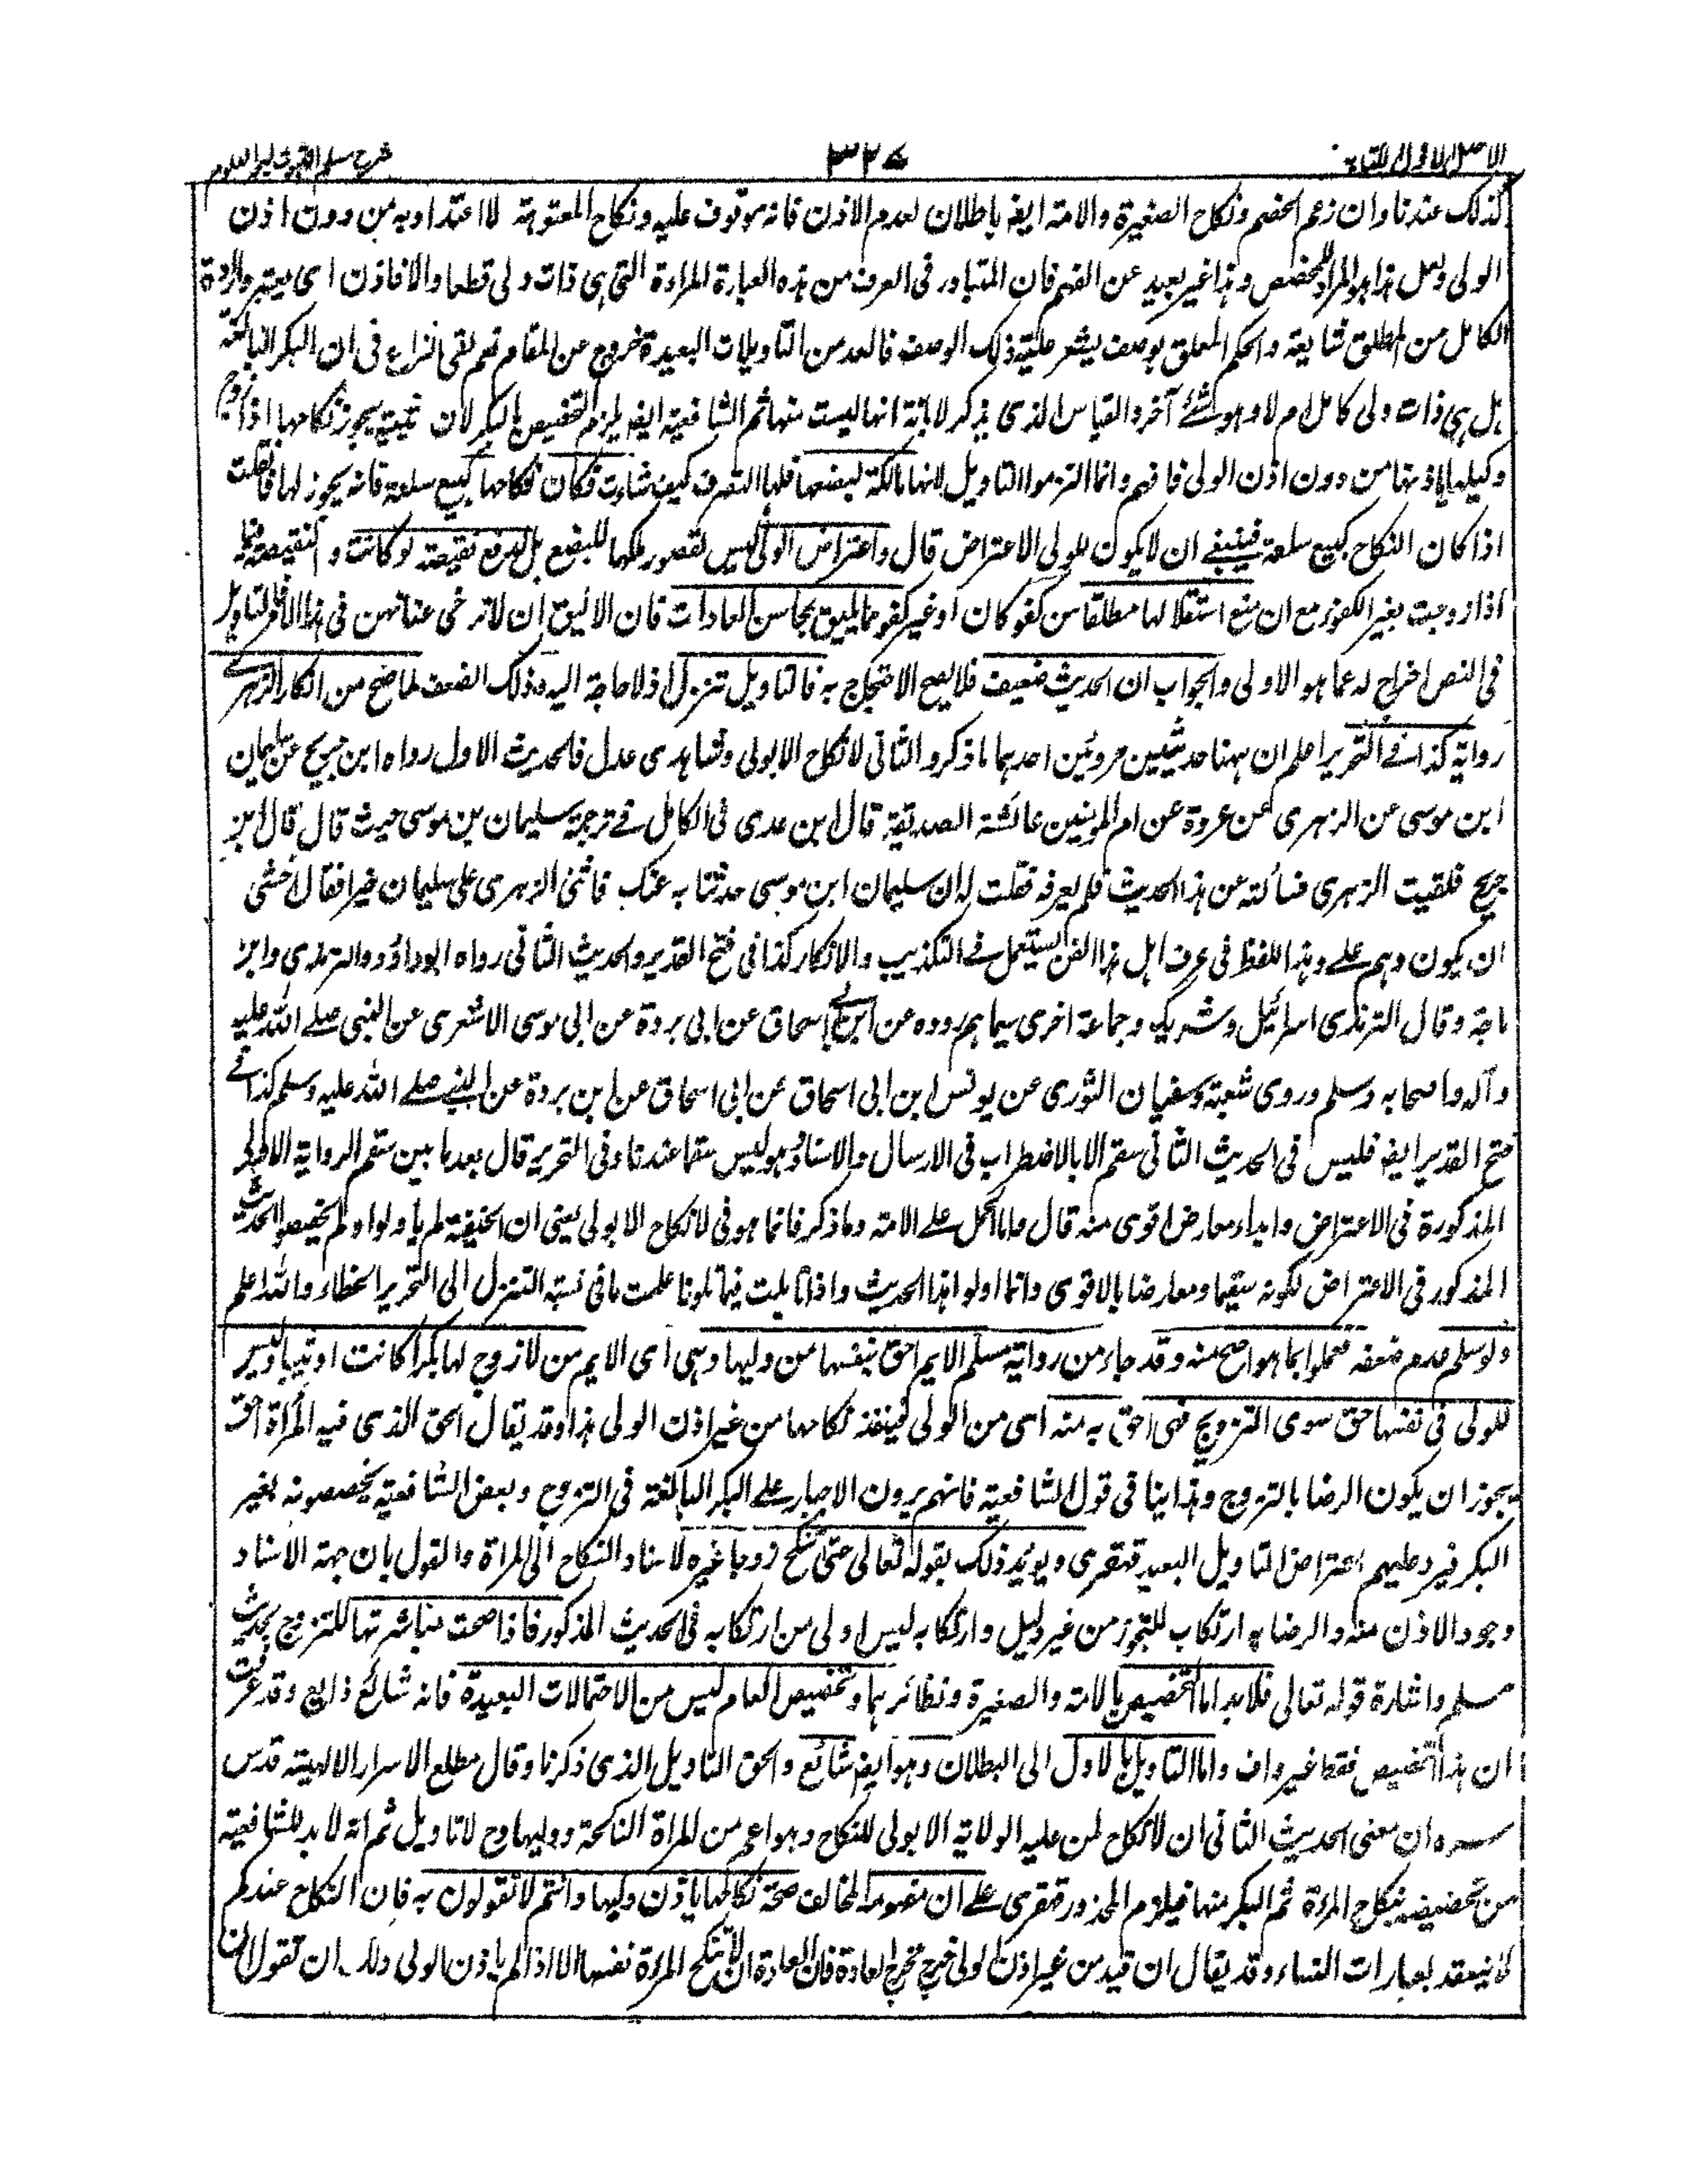 الاصل الاول الكتاب ٣٢٧ شرح مسلم الثبوت لبحر العلوم
كذلك عندنا وان زعم الخصم ونكاح الصغيرة والامة ايضا باطلان لعدم الاذن فانه موقوف عليه ونكاح المعتوهة لا اعتداد به من دون اذن
الولى ولعل هذا هو المراد للمخصص وهذا غير بعيد عن الفهم فان المتبادر فى العرف من هذه العبارة المراءة التى هى ذات ولى قطعا والا فاذن اى يعتبر وارادة
الكامل من المطلق شايعة والحكم المعلق بوصف يشعر علية ذلك الوصف فالعد من التاويلات البعيدة خروج عن المقام نعم بقى النزاع فى ان البكر البالغة
هل هى ذات ولى كامل ام لا وهو شئ آخر والقياس الذى يذكر لابانة انها ليست منها ثم الشافعية ايضا يلزم التخصيص بالبكر لان ثيبة يجوز نكاحها اذا زوج
وكيلها باذنها من دون اذن الولى فافهم وانما التزموا التاويل لانها مالكة لبضعها فلها التصرف كيف شاءت فكان نكاحها كبيع سلعة فانه يجوز لها فان قلت
اذا كان النكاح كبيع سلعة فينبغى ان لا يكون للولى الاعتراض قال واعتراض الولى ليس لقصور ملكها للبضع بل لدفع نقيصة لو كانت و النقيصة فيما
اذا زوجت بغير الكفو مع ان منع استقلالها مطلقا من كفو كان او غير كفو مما يليق بمحاسن العادات فان الاليق ان لا ترخى عنانهن فى هذا الامر فالتاويل
فى النص اخراج له عما هو الاولى والجواب ان الحديث ضعيف فلا يصح الاحتجاج به فالتاويل تنزل اذ لا حاجة اليه وذلك الضعف لما صح من انكار الزهرى
رواية كذا فى التحرير اعلم ان ههنا حديثين مرويين احدهما ما ذكر والثانى لا نكاح الا بولى وشاهدى عدل فالحديث الاول رواه ابن جريج عن سليمان
ابن موسى عن الزهرى عن عروة عن ام المؤمنين عائشة الصديقة قال ابن عدى فى الكامل فى ترجمة سليمان بن موسى حيث قال قال ابن
جريج فلقيت الزهرى فسألته عن هذا الحديث فلم يعرفه فقلت له ان سليمان ابن موسى حدثنا به عنك فاثنى الزهرى على سليمان خيرا فقال اخشى
ان يكون وهم على وهذا اللفظ فى عرف اهل هذا الفن يستعمل فى التكذيب والانكار كذا فى فتح القدير والحديث الثانى رواه ابو داؤد والترمذى وابن
ماجة وقال الترمذى اسرائيل وشريك وجماعة اخرى سماهم رووه عن ابى اسحاق عن ابى بردة عن ابى موسى الاشعرى عن النبى صلى الله عليه
وآله واصحابه وسلم وروى شعبة وسفيان الثورى عن يونس ابن ابى اسحاق عن ابى اسحاق عن ابن بردة عن النبى صلى الله عليه وسلم كذا فى
فتح القدير ايضا فليس فى الحديث الثانى سقم الا بالاضطراب فى الارسال والاسناد وهو ليس سقما عندنا وفى التحرير قال بعد ما بين سقم الرواية الاولى
المذكورة فى الاعتراض وابداء معارض اقوى منه قال واما الحمل على الامة وما ذكر فانما هو فى لا نكاح الا بولى يعنى ان الحنيفة لم ياولوا ولم يخصصوا الحديث
المذكور فى الاعتراض لكونه سقيما ومعارضا بالاقوى وانما اولوا هذا الحديث واذا تاملت فيما تلونا علمت ما فى نسبة التنزل الى التحرير الخطاء والله اعلم
ولو سلم عدم ضعفه فعملوا بما هو اصح منه وقد جاء من رواية مسلم الايم احق بنفسها من وليها وهى اى الايم من لا زوج لها بكرا كانت او ثيبا وليس
للولى فى نفسها حق سوى التزويج فهى احق به منه اى من الولى فينفذ نكاحها من غير اذن الولى هذا وقد يقال الحق الذى فيه المرأة احق
يجوز ان يكون الرضا بالتزوج وهذا ينافى قول الشافعية فانهم يرون الاجبار على البكر البالغة فى التزوج وبعض الشافعية يخصصونه بغير
البكر فيرد عليهم اعتراض التاويل البعيد قهقرى ويويد ذلك بقوله تعالى حتى تنكح زوجا غيره لاسناد النكاح الى المراة والقول بان جهة الاسناد
وجود الاذن منه والرضا به ارتكاب للتجوز من غير دليل وارتكابه ليس اولى من ارتكابه فى الحديث المذكور فاذا صحت مباشرتها للتزوج بحديث
مسلم واشارة قوله تعالى فلا بد اما التخصيص بالامة والصغيرة ونظائرهما وتخصيص العام ليس من الاحتمالات البعيدة فانه شائع ذايع وقد عرفت
ان هذا التخصيص فقط غير واف واما التاويل بالاول الى البطلان وهو ايضا شائع والحق التاويل الذى ذكرنا وقال مطلع الاسرار الالهية قدس
سره ان معنى الحديث الثانى ان لا نكاح لمن عليه الولاية الا بولى للنكاح وهو اعم من المراة الناكحة ووليها وح لا تاويل ثم انه لا بد للشافعية
من تخصيصه بنكاح المراءة ثم البكر منها فيلزم المحذور قهقرى على ان مفهومه المخالف صحة نكاحها باذن وليها وانتم لا تقولون به فان النكاح عندكم
لا ينعقد بعبارات النساء وقد يقال ان قيد من غير اذن الولى خرج مخرج العادة فان العادة ان لا تنكح المرءة نفسها الا اذا لم ياذن الولى ولك ان تقول ان